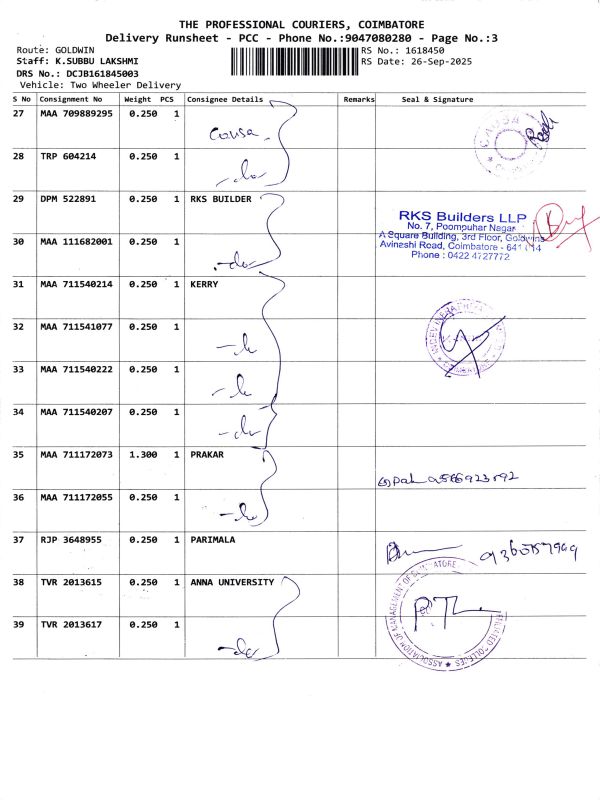 THE PROFESSIONAL COURIERS, COIMBATORE
Delivery Runsheet - PCC - Phone No.:9047080280 - Page No.:3
Route: GOLDWIN RS No.: 1618450
Staff: K.SUBBU LAKSHMI RS Date: 26-Sep-2025
DRS No.: DCJB161845003
Vehicle: Two Wheeler Delivery
S No Consignment No Weight PCS Consignee Details Remarks Seal & Signature
27 MAA 709889295 0.250 1
28 TRP 604214 0.250 1 -do-
29 DPM 522891 0.250 1 RKS BUILDER
RKS Builders LLP
No. 7, Poompuhar Nagar
A Square Building, 3rd Floor, Goldwins
Avinashi Road, Coimbatore - 641 014
Phone : 0422 4727772
30 MAA 111682001 0.250 1 -do-
31 MAA 711540214 0.250 1 KERRY
32 MAA 711541077 0.250 1 -do-
33 MAA 711540222 0.250 1 -do-
34 MAA 711540207 0.250 1 -do-
35 MAA 711172073 1.300 1 PRAKAR
36 MAA 711172055 0.250 1 -do-
37 RJP 3648955 0.250 1 PARIMALA
38 TVR 2013615 0.250 1 ANNA UNIVERSITY
39 TVR 2013617 0.250 1 -do-